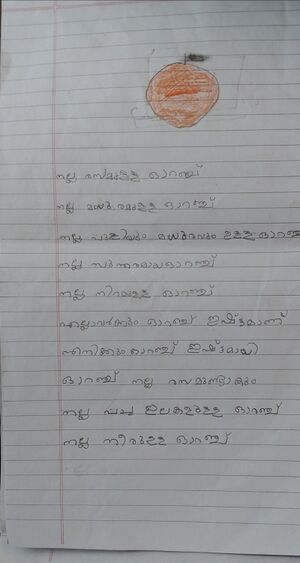 നല്ല രസമുള്ള ഓറഞ്ച്
നല്ല മധുരമുള്ള ഓറഞ്ച്
നല്ല പുളിയും മധുരവും ഉള്ള ഓറഞ്ച്
നല്ല സുന്ദരമായ ഓറഞ്ച്
നല്ല നിറമുള്ള ഓറഞ്ച്
എല്ലാവർക്കും ഓറഞ്ച് ഇഷ്ടമാണ്
എനിക്കും ഓറഞ്ച് ഇഷ്ടമായി
ഓറഞ്ച് നല്ല രസമുണ്ടാകും
നല്ല പച്ച ഇലകളുള്ള ഓറഞ്ച്
നല്ല നീരുള്ള ഓറഞ്ച്